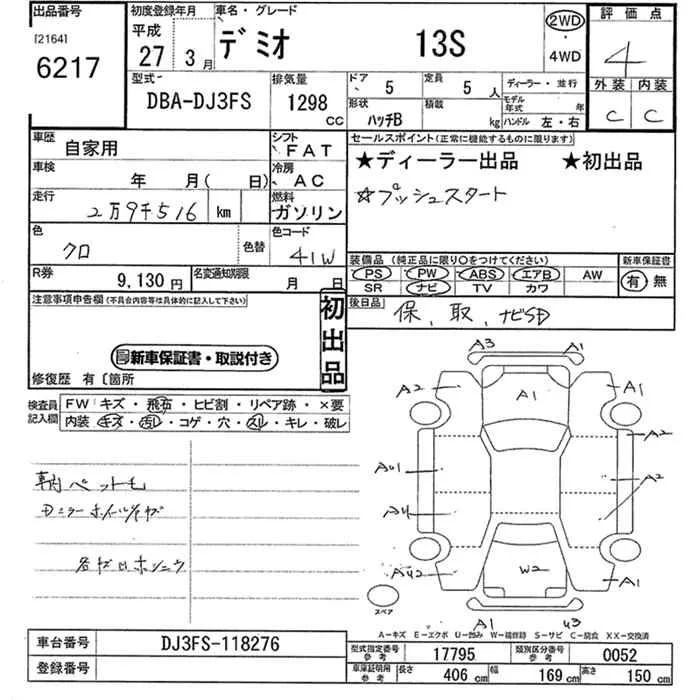 出品番号
[2164]
6217
初度登録年月
平成
27 3月
車名・グレード
デミオ 13S
2WD
・
4WD
評価点
4
外装 内装
C C
型式
DBA-DJ3FS
排気量
1298
CC
ドア
5
定員
5 人
形状
ハッチB
積載
kg
ディーラー・並行
モデル年式 年
ハンドル 左・右
車歴
自家用
シフト
FAT
車検
年 月( 日)
冷房
AC
走行
2万9千516 km
燃料
ガソリン
色
クロ
色替
色コード
41W
R券
9,130 円
名変通知期限
月 日
セールスポイント(正常に機能するものに限ります)
★ディーラー出品 ★初出品
☆プッシュスタート
装備品(純正品に限り○をつけてください)
PS PW ABS エアB AW
SR ナビ TV カワ
新車保証書
有 無
後日品
保、取、ナビSD
注意事項申告欄(不具合内容等は具体的に記入して下さい)
初出品
新車保証書・取説付き
修復歴 有〔箇所
検査員
記入欄
FW キズ・飛石・ヒビ割・リペア跡・×要
内装 キズ・汚レ・コゲ・穴・スレ・キレ・破レ
ペット毛
A3 A1
A2 A1 A1
A2
AU1 A2
AU
AU2 W2 A1
スペア
A1 U3
A-キズ E-エクボ U-凹み W-補修跡 S-サビ C-腐食 XX-交換済
車台番号
DJ3FS-118276
登録番号
型式指定番号
参考
17795
類別区分番号
参考
0052
車庫証明用
参考
長さ
406 cm
幅
169 cm
高さ
150 cm